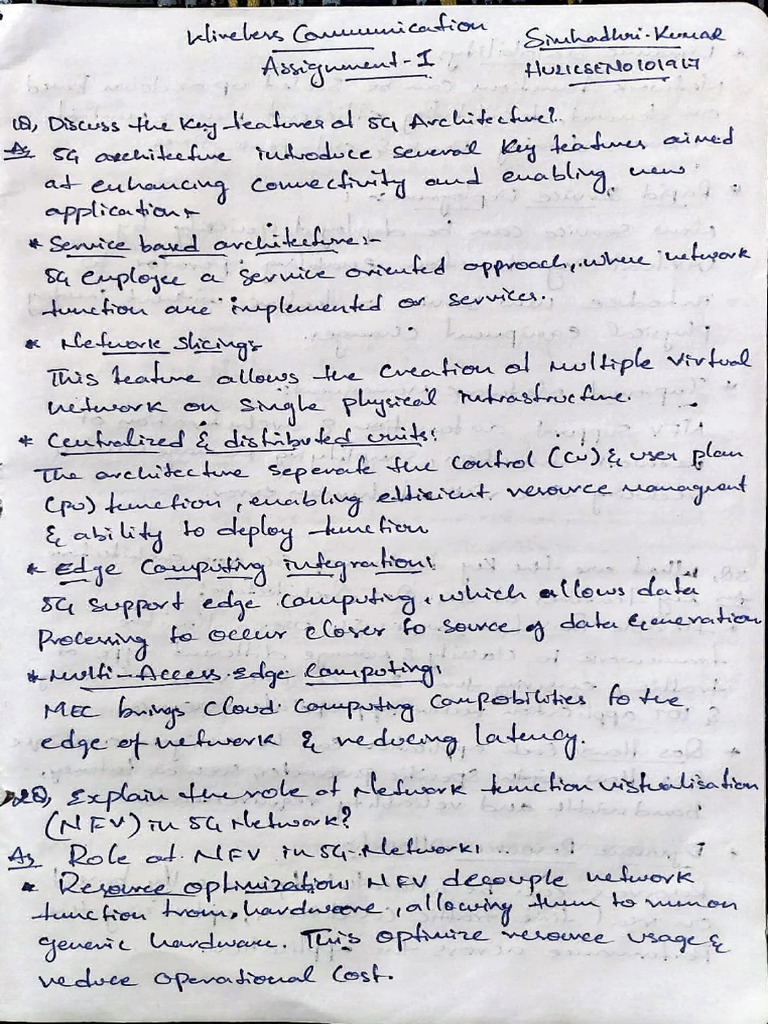 Wireless Communication
Assignment-I
Simhadhri-Kumar
HU21CSEN0101917
1Q, Discuss the Key-features of 5G Architecture?
As 5G architecture introduce several Key features aimed
at enhancing connectivity and enabling new
application:-
* Service based architecture:-
5G employee a service oriented approach, where network
function are implemented as services.
* Network slicing:
This feature allows the creation of multiple virtual
network on single physical infrastructure.
* Centralized & distributed units:
The architecture seperate the control (CU) & user plan
(PU) function, enabling efficient resource managment
& ability to deploy function
* Edge Computing integration:
5G support edge computing, which allows data
processing to occur closer to source of data Generation
* Multi-Access Edge Computing:
MEC brings Cloud Computing compobilities to the
edge of network & reducing latency.
2Q, Explain the role of Network function vistualisation
(NFV) in 5G Network?
As Role of NFV in 5G-Network:
* Resource optimization: NFV decouple network
function from, hardware, allowing them to run on
generic hardware. This optimize resource usage &
reduce operational Cost.